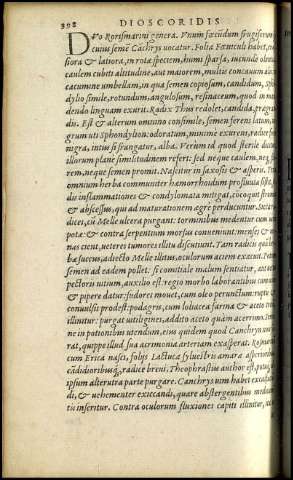 398 DIOSCORIDIS
DVo Rorismarini genera. Vnum fœcundum frugiferum
cuius semẽ Cachrys uocatur. Folia Fœniculi habet, cras
siora & latiora, in rotæ speciem, humi sparsa, iucundo odore
caulem cubiti altitudine, aut maiorem, multis concauum alis
cacumine umbellam, in qua semen copiosum, candidum, Spõ
dylio simile, rotundum, angulosum, resinaceum, quod in man
dendo linguam exurit. Radix Thus redolet, candida, prægran
dis. Est & alterum omnino consimile, semen ferens latum, ni
grum uti Sphondylion: odoratum, minimè exurens, radice foris
nigra, intus si frangatur, alba. Verùm id quod sterile dicitur
illorum planè similitudinem refert: sed neque caulem, neq; flo
rem, neque semen promit. Nascitur in saxosis & asperis.
omnium herba communiter hæmorrhoidum profluuia sistit, se
dis inflammationes & condylomata mitigat, cocoquit strumas
& abscessus, qui ad maturationem ægrè perducuntur. Siccæ ra
dices, cũ Melle ulcera purgant: torminibus medentur cum uino
potæ: & contra serpentium morsus conueniunt: menses & uri
nas cient, ueteres tumores illitu discutiunt. Tam radicis quàm her
bæ succus, adiecto Melle illitus, oculorum aciem exacuit. Potum
semen ad eadem pollet: si comitiale malum sentatur, aut uetus
pectoris uitium, auxilio est. regio morbo laborantibus cum uino
& pipere datur: sudores mouet, cum oleo perunctum: ruptis &
conuulsis prodest: podagris, cum loliacea farina & aceto acri
illitum: purgat uitiligines, addito aceto quàm acerrimo. Semi
ne in potionibus utendum, eius quidem quod Canchryn non fe
rat, quippe illud sua acrimonia arteriam exasperat.
cum Erica nasci, folijs Lactucæ syluestris amaræ asperioribus
cãdidioribusq́;, radice breui, Theophrastus author est,
ipsum alterutra parte purgare. Canchrys uim habet excalfacien
di, & uehementer exiccandi, quare abstergentibus medicamen
tis inseritur. Contra oculorum fluxiones capiti illinitur,